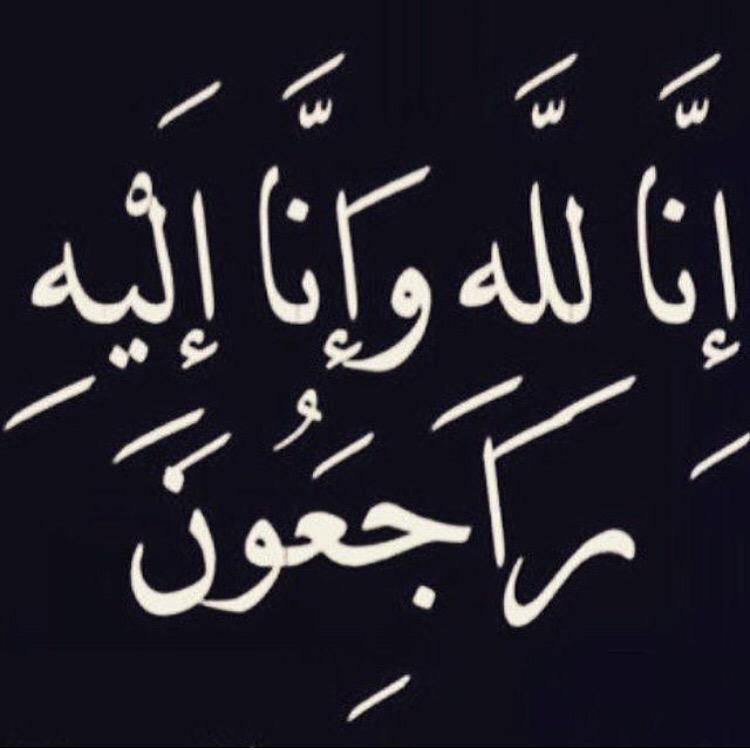 إِنَّا لله وَإِنَّا إِلَيْهِ
رَاجِعُونَ